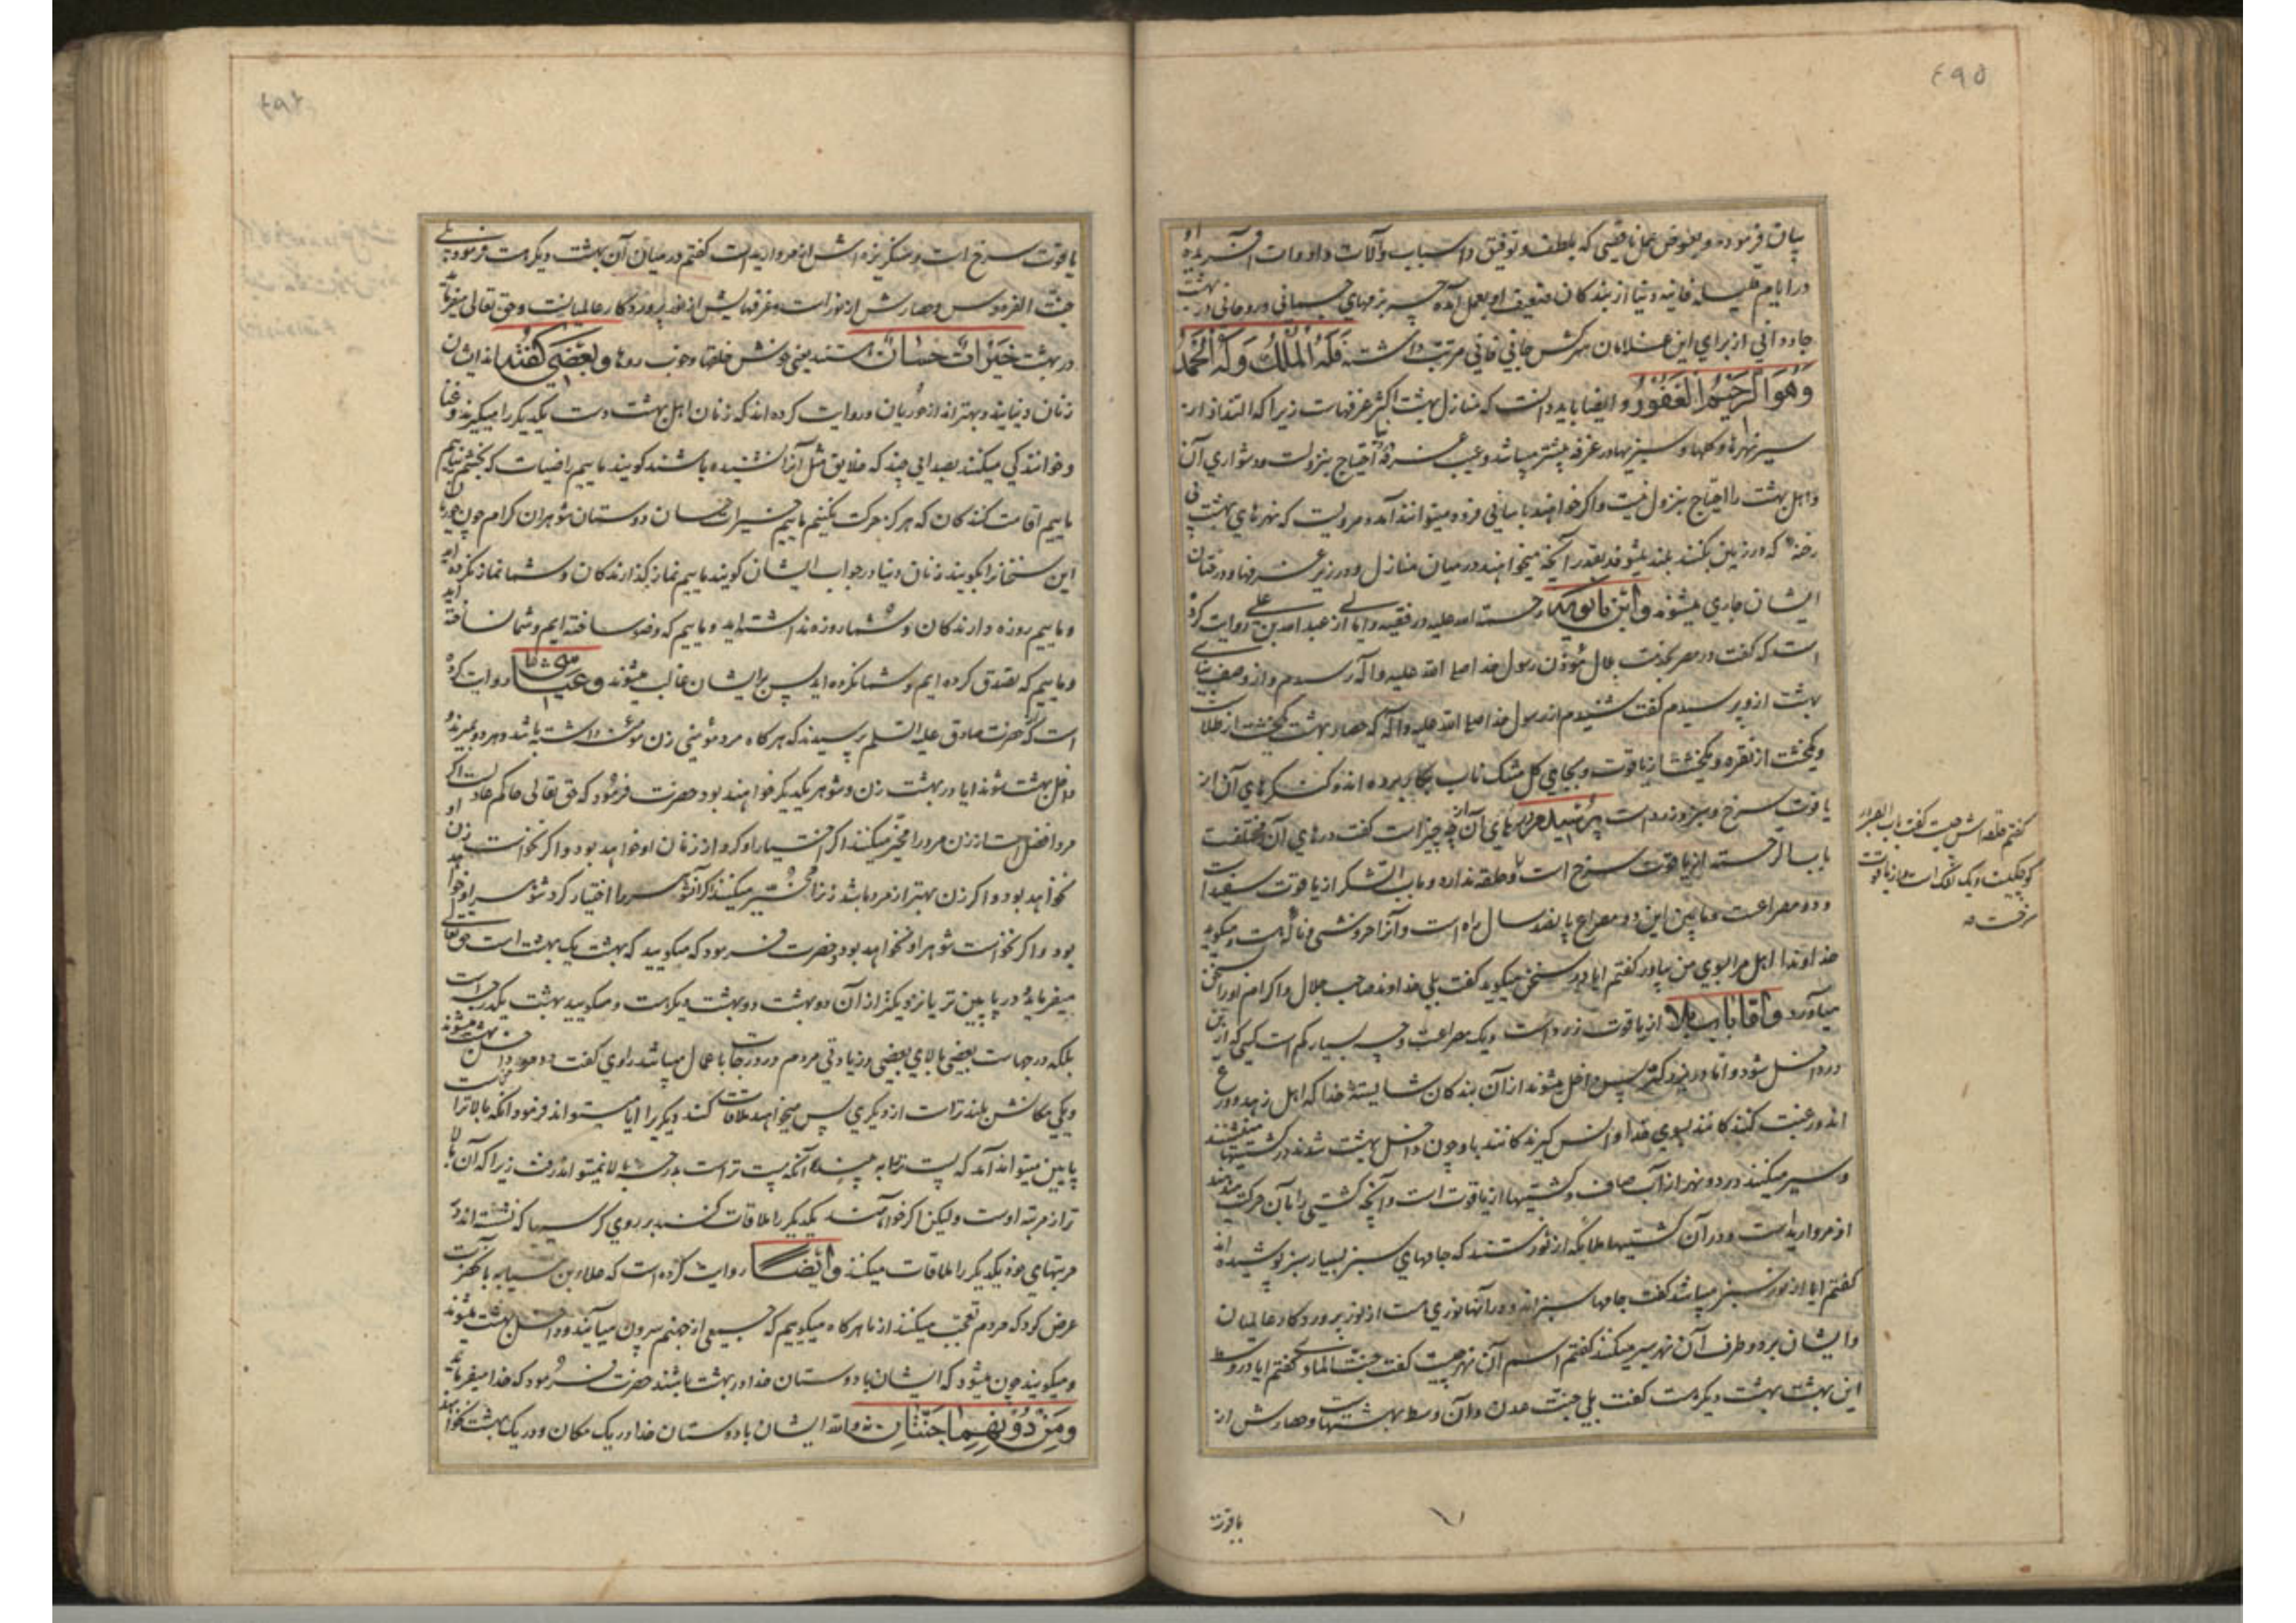 ٤٩٥
بیان فرموده و بعوض عمل ناقصی که بلطف و توفیق و اسباب و آلات و ادوات او آفریده
در ایام قلیله فانیه دنیا از بندگان ضعیف او بعمل آمده چه بزمهای جسمانی و روحانی در بهشت
جاودانی از برای این غلامان سرکش جانی فانی مرتب داشته فله الملک وله الحمد
وهو الرحیم الغفور و ایضا باید دانست که منازل بهشت اکثر غرفهاست زیرا که التذاذ از
سیر نهرها و گلها و سبزیها در غرفه بیشتر میباشد و عیب غرفه دنیا احتیاج بنزولست و دشواری آن
و اهل بهشت را احتیاج بنزول نیست و اگر خواهند باسانی فرود میتوانند آمد و مرویست که نهرهای بهشت بی
رخنه که در زمین بکنند بلند میشوند بقدر آنچه میخواهند در میان منازل و در زیر غرفها و درختان
ایشان جاری میشوند و ابن بابویه رحمة الله علیه در فقیه و امالی از عبد الله بن علی روایت کرده
است که گفت در مصر بخدمت بلال مؤذن رسول خدا صلی الله علیه و آله رسیدم و از وصف بنای
بهشت از و پرسیدم گفت شنیدم از رسول خدا صلی الله علیه و آله که حصار بهشت یکخشت از طلاست
و یکخشت از نقره و یکخشت از یاقوت و بجای گل مشک ناب بکار برده اند و کنگرهای آن از
یاقوت سرخ و سبز و زرد است پرسیدم درهای آن از چه چیز است گفت درهای آن مختلفست
باب الرحمه از یاقوت سرخ است و حلقه ندارد و باب الشکر از یاقوت سفید است
و دو مصراعست و مابین این دو مصراع پانصد سال راه است و آنرا خروشی و ناله هست و میگوید
خداوندا اهل مرا بسوی من بیاور گفتم ایا در سخن میگوید گفت بلی خداوند صاحب جلال و اکرام او را بسخن
میاورد و اما باب بلا از یاقوت زرد است و یک مصراعست و چه بسیار کم است کسی که از این
در داخل شود و اما در بزرگتر پس داخل میشوند از آن بندگان شایسته خدا که اهل زهد و ورع
اند و رغبت کنندگانند بسوی خدا و انس گیرندگانند باو و چون داخل بهشت شدند در کشتیها مینشینند
و سیر میکنند در دو نهر از آب صاف و کشتیها از یاقوت است و آنچه کشتی را بآن حرکت میدهند
از مروارید است و در آن کشتیها ملائکه از نور هستند که جامهای سبز بسیار سبز پوشیده اند
گفتم ایا از نور سبز میباشد گفت جامها سبز اند و در آنها نوری هست از نور پروردگار عالمیان
و ایشان بر دو طرف آن نهر سیر میکنند گفتم اسم آن نهر چیست گفت جنت الماوی گفتم ایا در وسط
این بهشت بهشت دیگر هست گفت بلی جنت عدن و آن وسط بهشتهاست و حصارش از
گفتم حلقه اش چیست گفت باب الصبر در
کوچکیست و یک لنگ است و از یاقوت
سرخست
یاقوت
٤٩٦
یاقوت سرخ است و سنگریزه اش از مروارید است گفتم در میان آن بهشت دیگر هست فرمود بلی
جنت الفردوس و حصارش از نور است و غرفهایش از نور پروردگار عالمیانست و حق تعالی میفرماید
در بهشت خیرات حسان هستند یعنی خوش خلقها و خوب روها و بعضی گفته اند ایشان
زنان دنیایند و بهتراند از حوریان و روایت کرده اند که زنان اهل بهشت دست یکدیگر را میگیرند و غنا
و خوانندگی میکنند بصدایی چند که خلایق مثل آنرا نشنیده باشند گویند ماییم راضیات که بخشم نیاییم
ماییم اقامت کنندگان که هرگز حرکت نکنیم ماییم خیرات حسان دوستان شوهران کرام چون حوریان
این سخنانرا بگویند زنان دنیا در جواب ایشان گویند ماییم نماز گذارندگان و شما نماز نکرده اید
و ماییم روزه دارندگان و شما روزه نداشته اید و ماییم که وضو ساخته ایم و شما نساخته اید
و ماییم که تصدق کرده ایم و شما نکرده اید پس بر ایشان غالب میشوند و عیاشی روایت کرده
است که از حضرت صادق علیه السلم پرسیدند که هرگاه مرد مؤمنی زن مؤمنه داشته باشد و هر دو بمیرند و
داخل بهشت شوند ایا در بهشت زن و شوهر یکدیگر خواهند بود حضرت فرمود که حق تعالی حاکم عادلست اگر
مرد افضل است از زن مرد را مخیر میکنند اگر اختیار او کرد از زنان او خواهد بود و اگر نخواست زن او
نخواهد بود و اگر زن بهتر از مرد باشد زنرا مخیر میکنند اگر آنشوهر را اختیار کرد شوهر او خواهد
بود و اگر نخواست شوهر او نخواهد بود و حضرت فرمود که میگویید که بهشت یک بهشت است حق تعالی
میفرماید در پایین تر یا نزدیکتر از آن دو بهشت دو بهشت دیگر هست و میگویید بهشت یکدرجه است
بلکه درجهاست بعضی بالای بعضی و زیادتی مردم در درجات باعمال میباشد راوی گفت دو مؤمن داخل بهشت میشوند
و یکی مکانش بلند تر است از دیگری پس میخواهد ملاقات کند دیگریرا ایا میتواند فرمود آنکه بالاتر است
پایین میتواند آمد که پست تر را به بیند و آنکه پست تر است بدرجه بالا نمیتواند رفت زیرا که آن بالا
تر از مرتبه اوست ولیکن اگر خواهند یکدیگر را ملاقات کنند بر روی کرسیها که نشسته اند در
مرتبهای خود یکدیگر را ملاقات میکنند و ایضا روایت کرده است که علاء بن سیابه بآنحضرت
عرض کرد که مردم تعجب میکنند از ما هرگاه میگوییم که جمعی از جهنم بیرون میآیند و داخل بهشت میشوند
و میگویند چون میشود که ایشان با دوستان خدا در بهشت باشند حضرت فرمود که خدا میفرماید
ومن دونهما جنتان و الله ایشان با دوستان خدا در یک مکان و در یک بهشت نخواهند